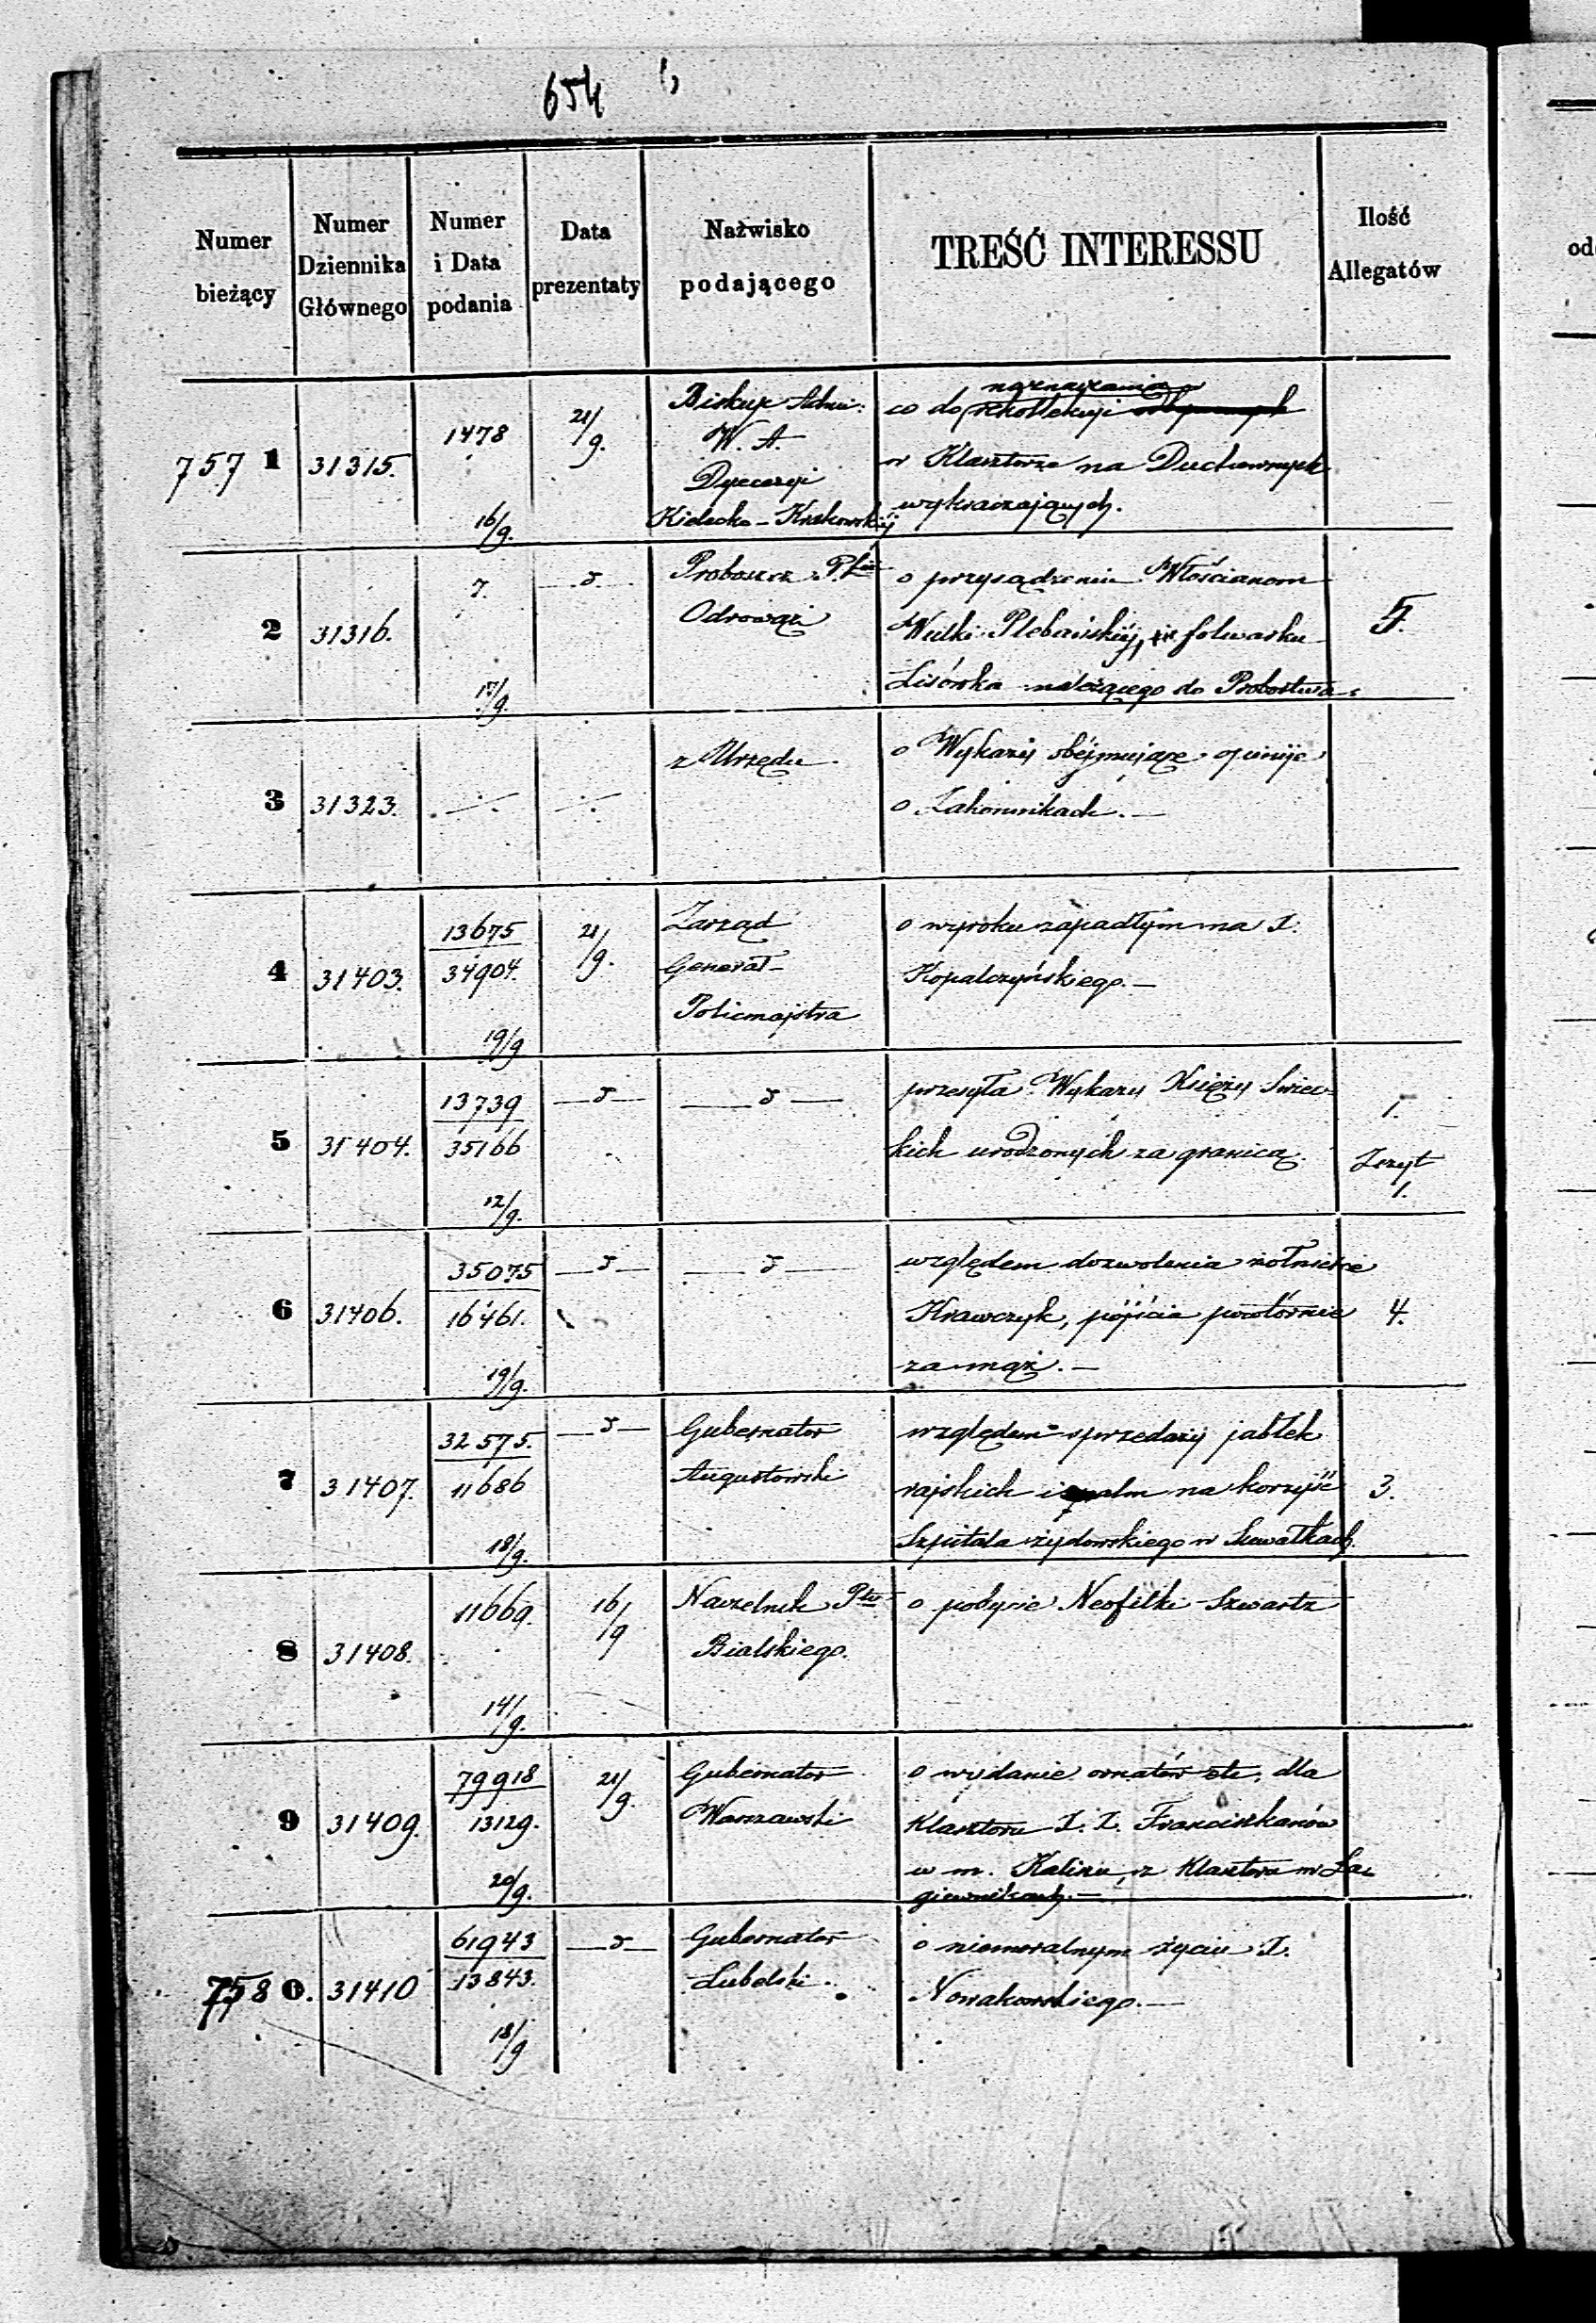 654
Numer bieżący
Numer Dziennika Głównego
Numer i Data podania
Data prezentaty
Nazwisko podającego
TREŚĆ INTERESSU
Ilość Allegatów
od
757 1
31315.
1478
16/9.
21/9.
Biskup Admi:
W. A.
Dyecezyi
Kielecko-Krakowskiéj
naznaczania
co do rekollekcyi
w Klasztorze na Duchownych
wykraczających.
2
31316.
7.
17/9.
—d—
Proboszcz P.
Odrowąż
o przysądzeniu Włościanom
Wulki Plebańskiéj, folwarku
Lisówka należącego do Probostwa
5.
3
31323.
—:—
—:—
z Urzędu
o Wykazy obejmujące opinije
o Zakonnikach.—
4
31403.
13675
34904.
19/9
21/9.
Zarząd
Generał-
Policmajstra
o wyroku zapadłym na X.
Kopalczyńskiego.—
5
31404.
13739
35166
12/9.
—d—
—d—
przesyła Wykazy Księży Swiec-
kich urodzonych za granicą.
1.
Zeszyt
1.
6
31406.
35075
16461.
19/9.
—d—
—d—
względem dozwolenia żołnierce
Krawczyk, pójścia powtórnie
za mąż.—
4.
7
31407.
32575.
11686
18/9.
—d—
Gubernator
Augustowski
względem sprzedaży jabłek
rajskich i palm na korzyść
Szpitala żydowskiego w Suwałkach.
3.
8
31408.
11669.
14/9.
16/9
Naczelnik Ptu
Bialskiego.
o pobycie Neofitki Szwartz
9
31409.
79918
13129.
20/9.
21/9.
Gubernator
Warszawski
o wydanie ornatów etc. dla
Klasztoru X. X. Franciszkanów
w m. Kaliszu, z Klasztoru w Ła-
giewnikach.—
758 0.
31410
61943
13843.
18/9
—d—
Gubernator
Lubelski.
o niemoralnym życiu X.
Nowakowskiego.—